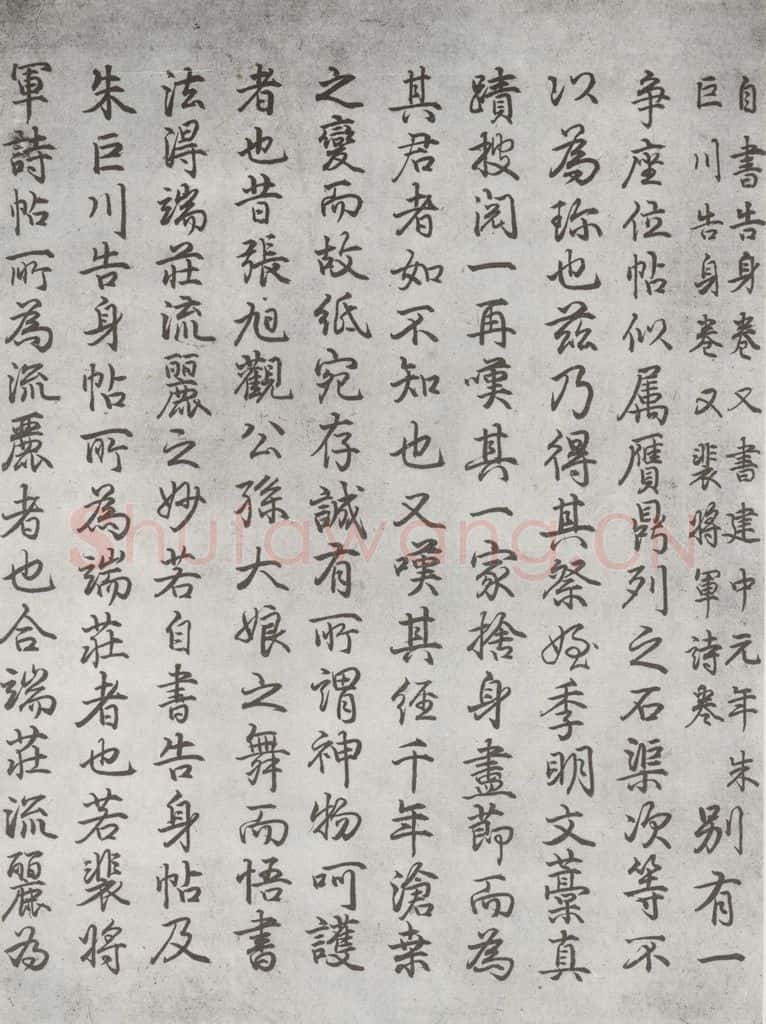 自書告身卷又書建中元年朱
巨川告身卷又裴將軍詩卷
別有一
争座位帖似属贋鼎列之石渠次等不
以為珎也茲乃得其祭姪季明文藁真
蹟披閱一再嘆其一家捨身盡節而為
其君者如不知也又嘆其經千年滄桑
之變而故紙宛存誠有所謂神物呵護
者也昔張旭觀公孫大娘之舞而悟書
法得端莊流麗之妙若自書告身帖及
朱巨川告身帖所為端莊者也若裴將
軍詩帖所為流麗者也合端莊流麗為
Shufawang.CN